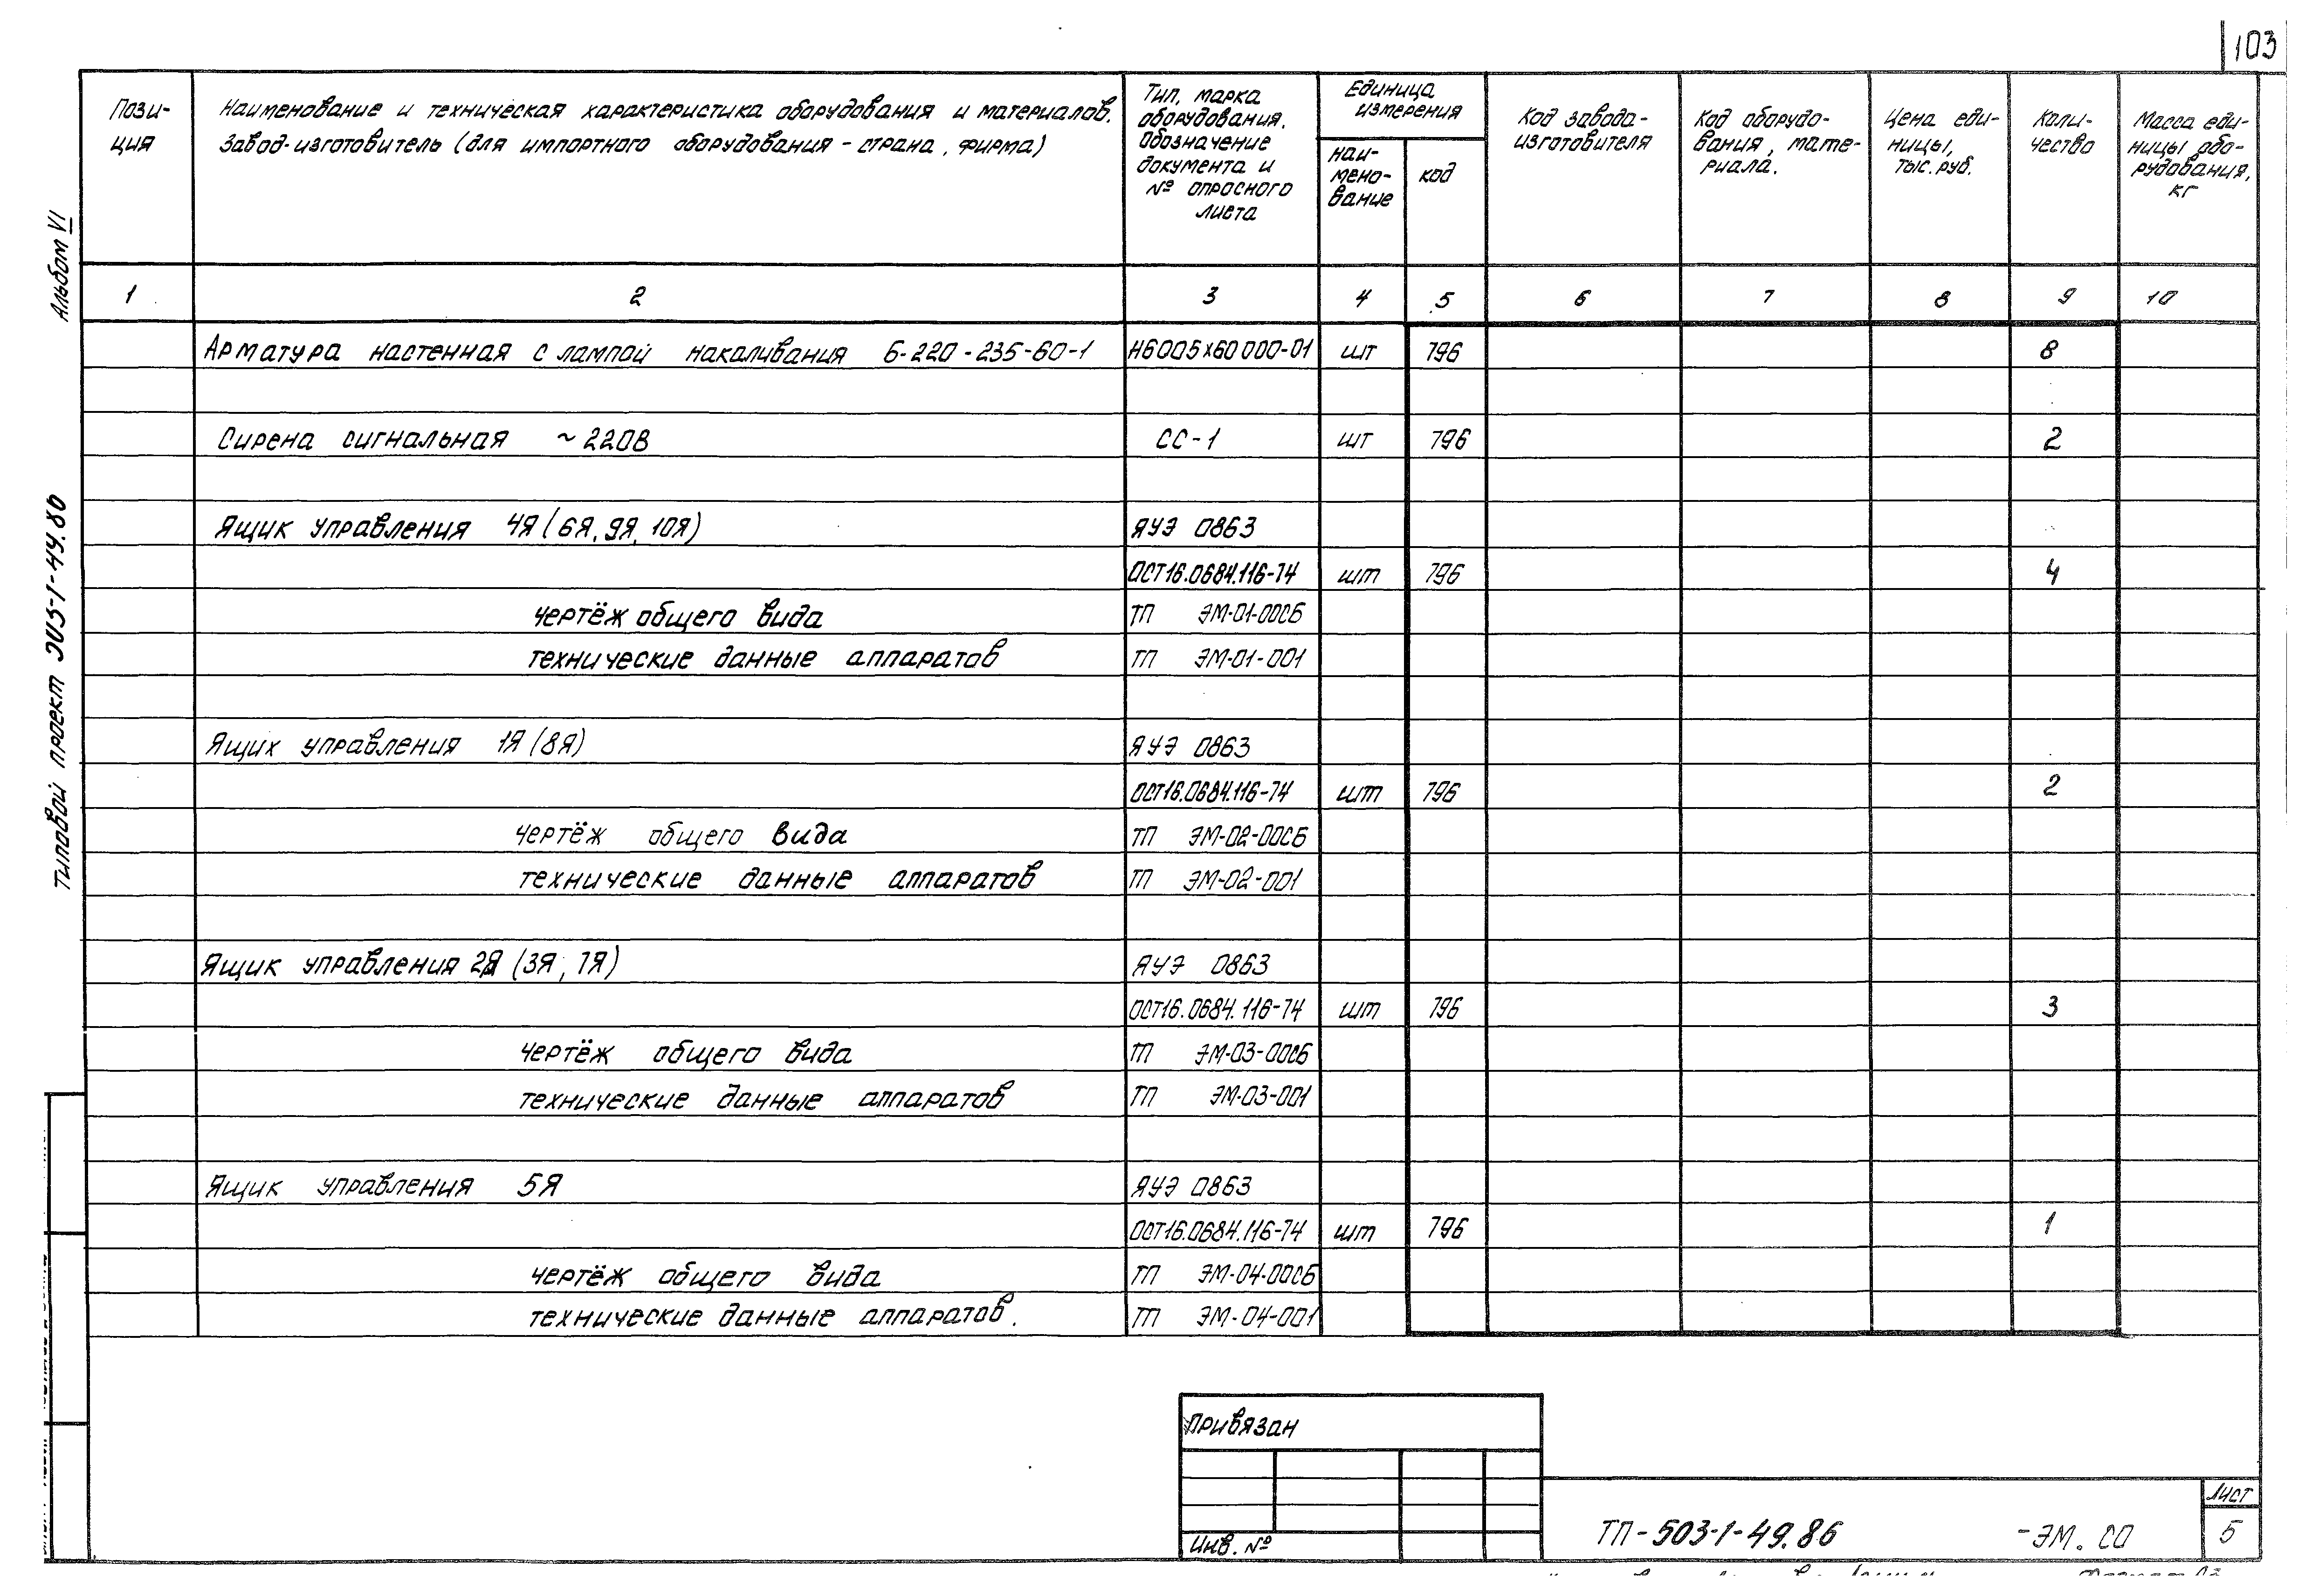 103
Пози-
ция
Наименование и техническая характеристика оборудования и материалов.
Завод-изготовитель (для импортного оборудования - страна, фирма)
Тип, марка
оборудования.
Обозначение
документа и
№ опросного
листа
Единица
измерения
наи-
мено-
вание
код
Код завода-
изготовителя
Код оборудо-
вания, мате-
риала.
Цена еди-
ницы,
тыс. руб.
Коли-
чество
Масса еди-
ницы обо-
рудования,
кг
1 2 3 4 5 6 7 8 9 10
Арматура настенная с лампой накаливания Б-220-235-60-1 Н6005х60000-01 шт 796 8
Сирена сигнальная ~220В СС-1 шт 796 2
Ящик управления 4Я (6Я, 9Я, 10Я) ЯУЭ 0863
ОСТ16.0684.116-74 шт 796 4
чертёж общего вида ТП ЭМ-01-00СБ
технические данные аппаратов ТП ЭМ-01-001
Ящик управления 1Я (8Я) ЯУЭ 0863
ОСТ16.0684.116-74 шт 796 2
чертёж общего вида ТП ЭМ-02-00СБ
технические данные аппаратов ТП ЭМ-02-001
Ящик управления 2Я (3Я, 7Я) ЯУЭ 0863
ОСТ16.0684.116-74 шт 796 3
чертёж общего вида ТП ЭМ-03-00СБ
технические данные аппаратов ТП ЭМ-03-001
Ящик управления 5Я ЯУЭ 0863
ОСТ16.0684.116-74 шт 796 1
чертёж общего вида ТП ЭМ-04-00СБ
технические данные аппаратов. ТП ЭМ-04-001
Альбом VI
Типовой проект
Привязан
Инв. №
ТП-503-1-49.86 -ЭМ.СО
Лист
5